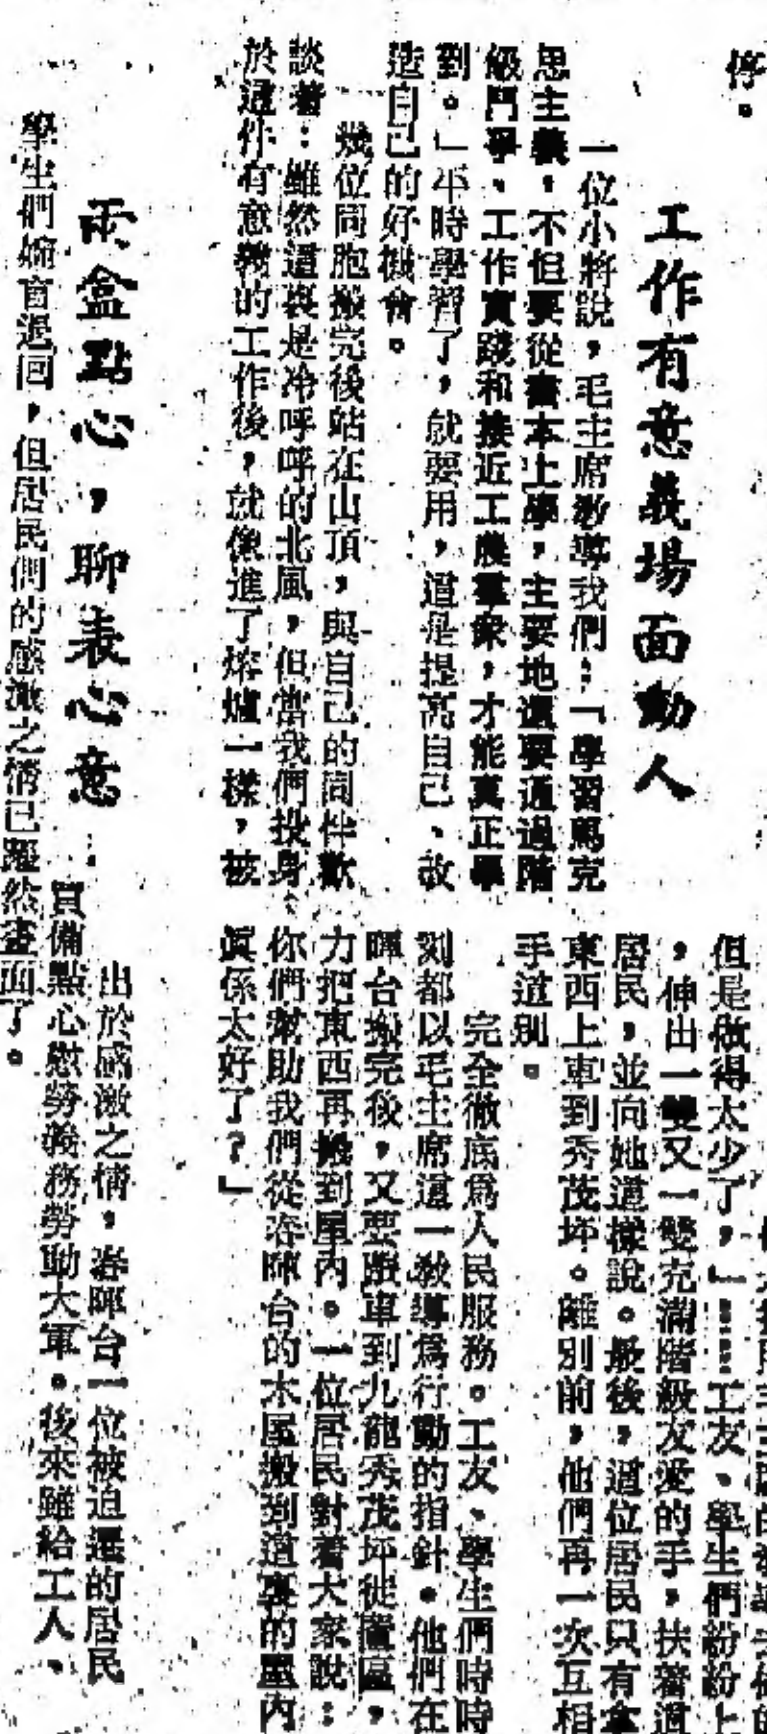 停。
工作有意義場面動人
一位小將說，毛主席教導我們：「學習馬克
思主義，不但要從書本上學，主要地還要通過階
級鬥爭、工作實踐和接近工農羣衆，才能真正學
到。」平時學習了，就要用，這是提高自己、改
造自己的好機會。
幾位同胞搬完後站在山頂，與自己的同伴歡
談着：雖然這裏是冷呼呼的北風，但當我們投身
於這件有意義的工作後，就像進了熔爐一樣，被
但是做得太少了，」……工友、學生們紛紛上
，伸出一雙又一雙充滿階級友愛的手，扶着這
居民，並向她這樣說。最後，這位居民只有拿
東西上車到秀茂坪。離別前，他們再一次互相
手道別。
完全徹底爲人民服務。工友、學生們時時
刻都以毛主席這一教導爲行動的指針。他們在
暉台搬完後，又要跟車到九龍秀茂坪徙置區，
力把東西再搬到屋內。一位居民對着大家說：
你們幫助我們從春暉台的木屋搬到這裏的屋內
眞係太好了？」
兩盒點心，聊表心意
出於感激之情，春暉台一位被迫遷的居民
買備點心慰勞義務勞動大軍。後來雖給工人、
學生們婉言退回，但居民們的感激之情已躍然畫面了。